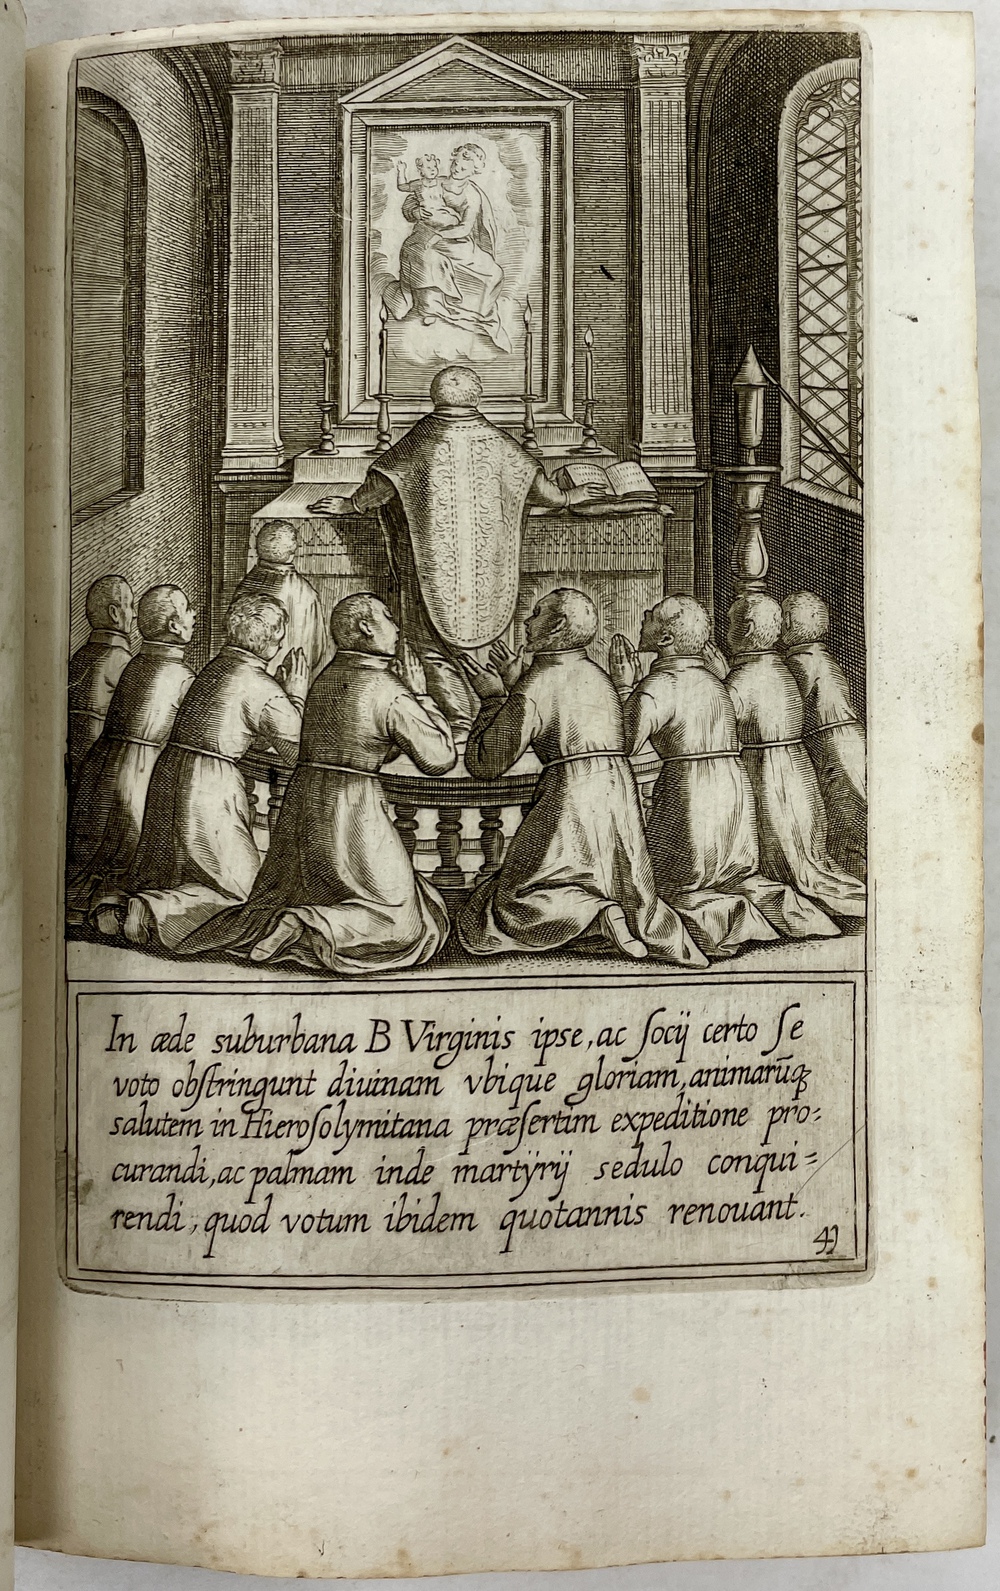 In æde suburbana B Virginis ipse, ac ſocij certo ſe
voto obſtringunt diuinam vbique gloriam, animarūqꝫ
salutem in Hieroſolymitana præſertim expeditione pro:
curandi, ac palmam inde martÿrij sedulo conqui=
rendi, quod votum ibidem quotannis renouant.